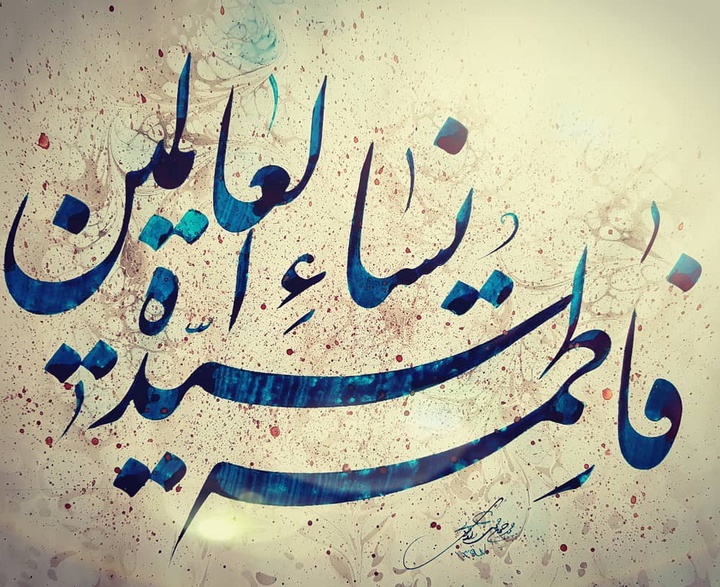 فاطمة
سيدة نساء العالمين